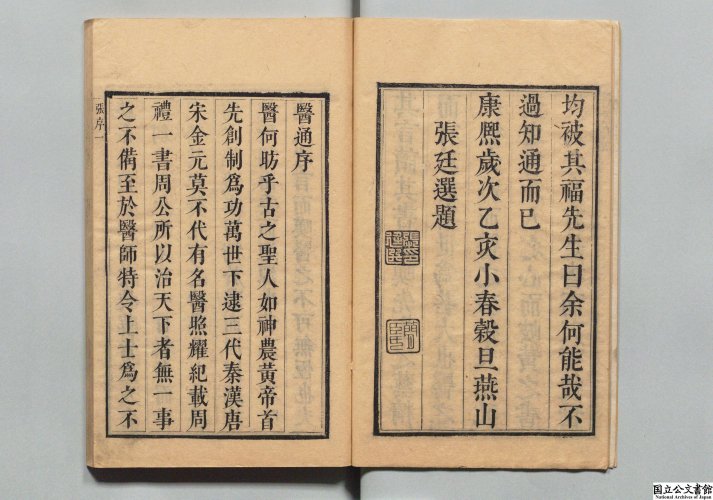 均被其福先生曰余何能哉不
過知通而已
康熙歲次乙亥小春穀旦燕山
張廷選題
醫通序
醫何昉乎古之聖人如神農黃帝首
先創制爲功萬世下逮三代秦漢唐
宋金元莫不代有名醫照耀紀載周
禮一書周公所以治天下者無一事
之不備至於醫師特令上士爲之不
張序
一
国立公文書館
National Archives of Japan